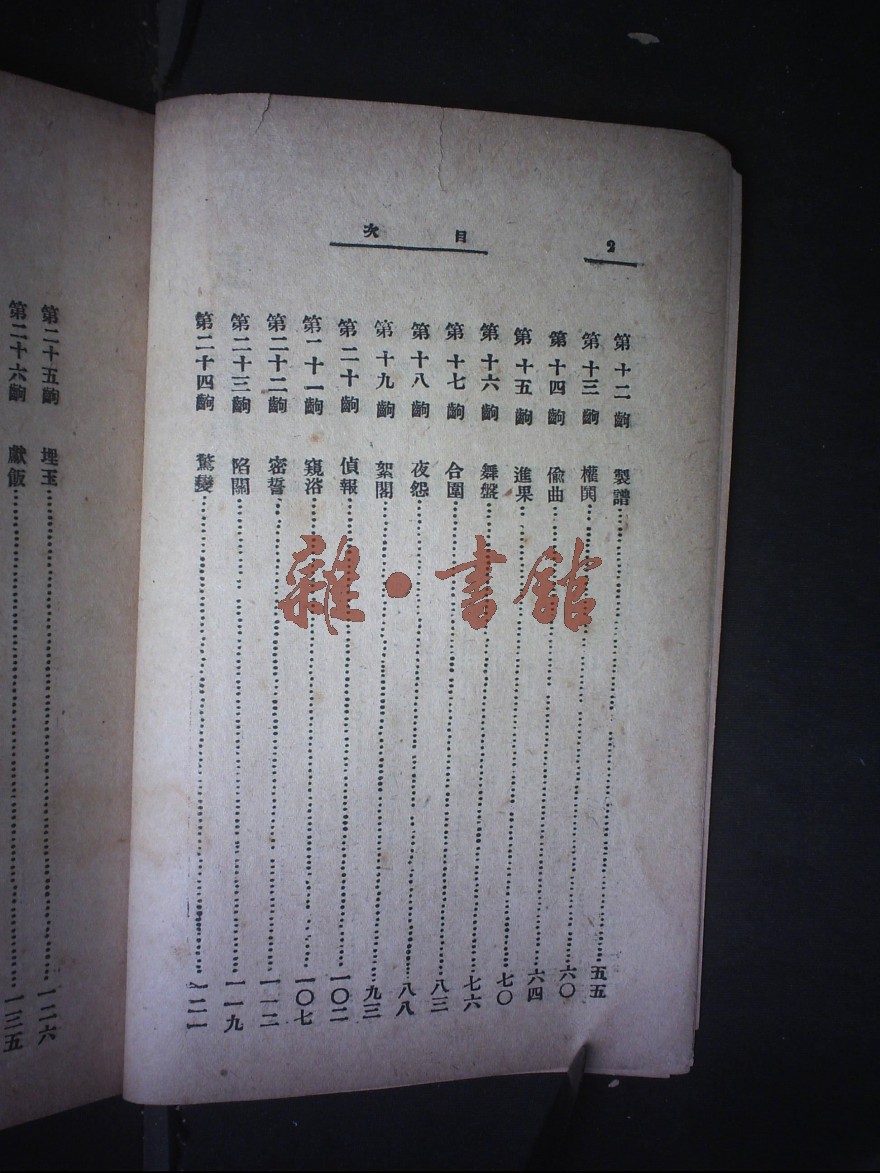 2
目次
第十二齣 製譜……五五
第十三齣 權閧……六〇
第十四齣 偸曲……六四
第十五齣 進果……七〇
第十六齣 舞盤……七六
第十七齣 合圍……八三
第十八齣 夜怨……八八
第十九齣 絮閣……九三
第二十齣 偵報……一〇二
第二十一齣 窺浴……一〇七
第二十二齣 密誓……一一二
第二十三齣 陷關……一一九
第二十四齣 驚變……一二一
第二十五齣 埋玉……一二六
第二十六齣 獻飯……一三五
雜·書館